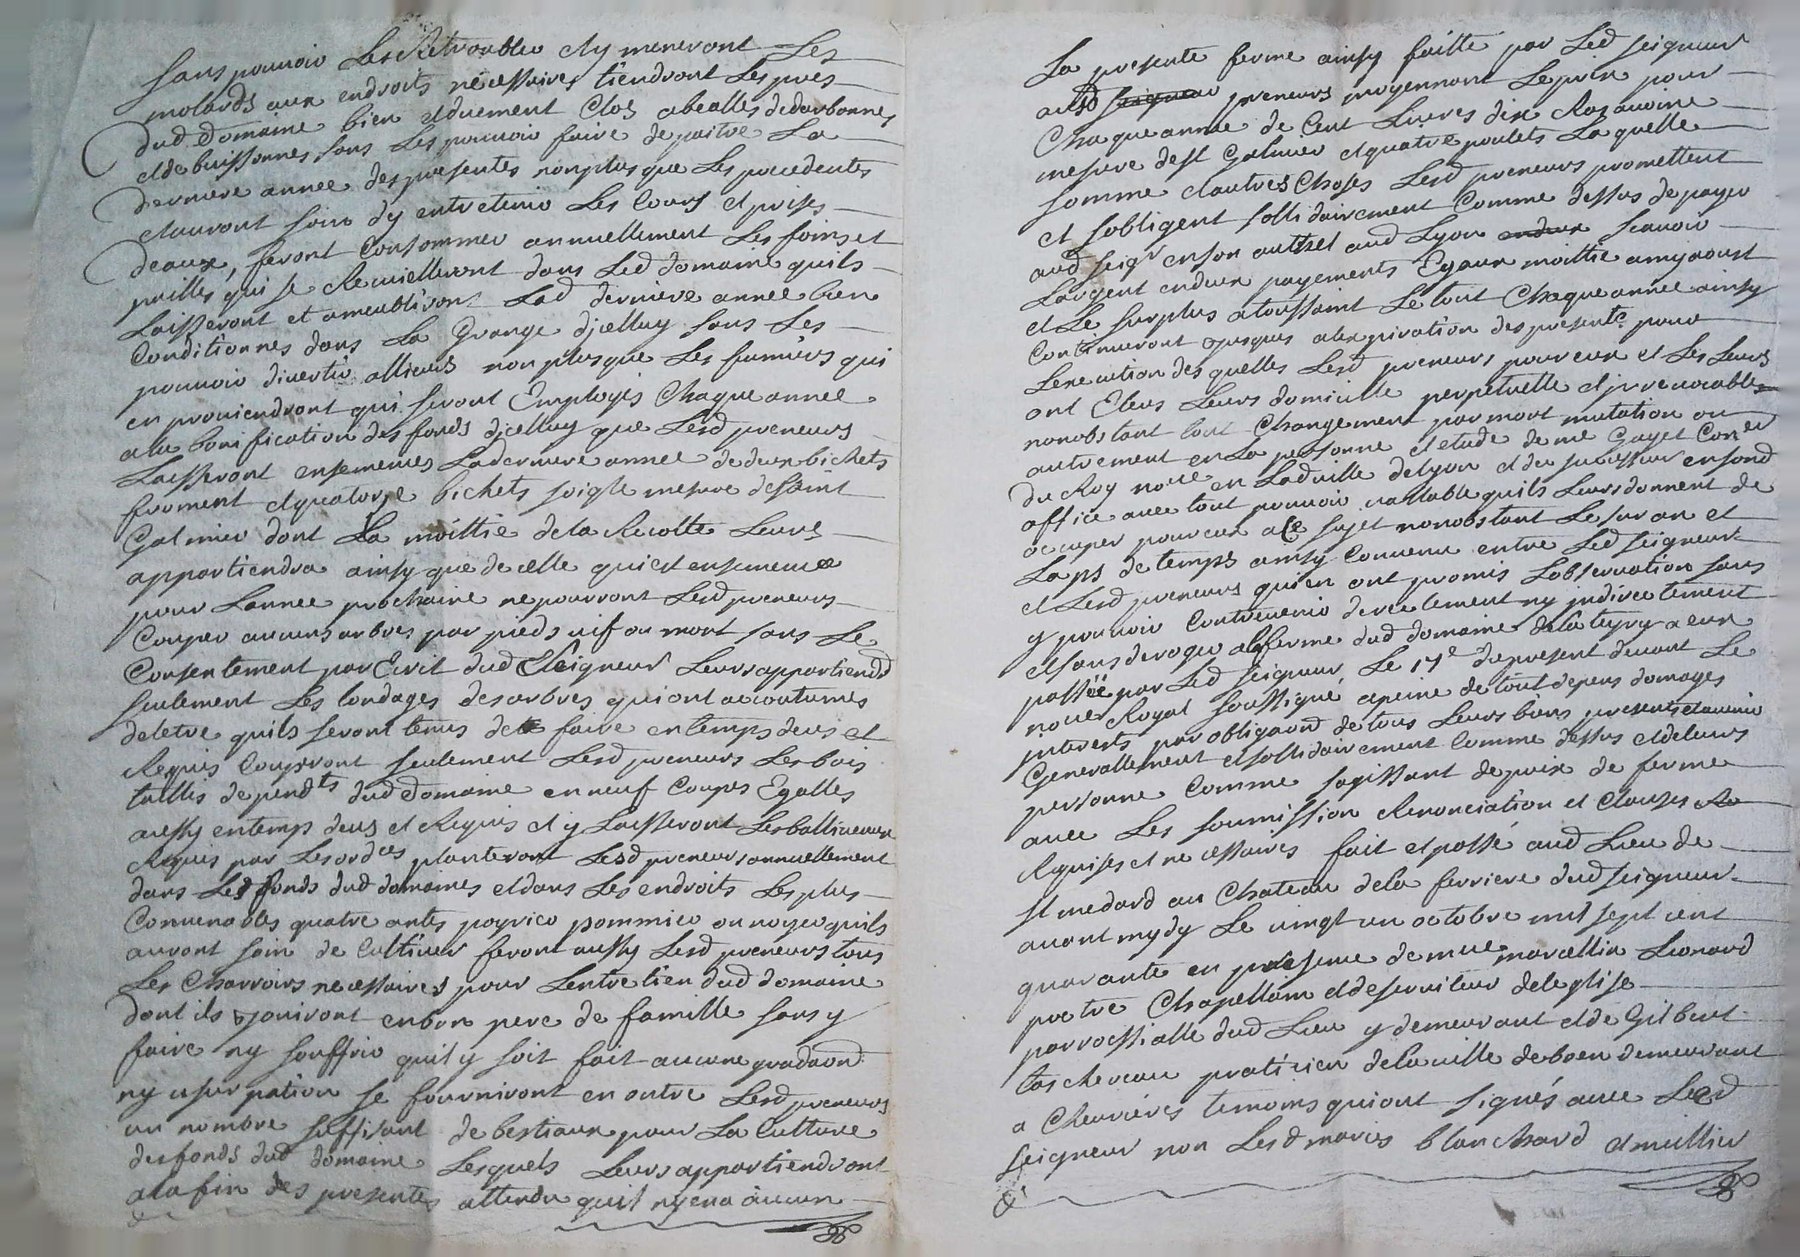 sans pouvoir les Retroubler et y meneront les
molards aux endroits nécessaires tiendront les prés
dud Domaine bien et duement Clos abealles dedarbonnes
et de buissonnes sans les pouvoir faire depaitre La
derniere année des presentes nonplus que Les precedentes
et auront soin dy entretenir Les Cours et prises
deaux, feront Consommer annuellement Les foins et
pailles qui se Recuielleront dans Led domaine quils
Laisseront et ameubliront Lad derniere année bien
Conditionnés dans La Grange djcelluy sans Les
pouvoir divertir allieurs non plus que Les fumiers qui
en proviendront qui seront Employés Chaque année
ala bonification des fonds djcelluy que Lesd preneurs
Laisseront ensemencés Laderniere année de deux bichets
froment et quatorze bichets soigle mesure de Saint
Galmier dont La moittié dela Recolte Leurs
appartiendra ainsy que de celle qui est ensemencé
pour Lannée prochaine ne pourront Lesd preneurs
Couper aucuns arbres par pieds vif ou mort sans Le
Consentement par Ecrit dud Seigneur Leurs appartiendr
seulement Les tondages des arbres qui ont accoutumés
deletre quils seront tenus de faire en temps deus et
Requis Couperont seulement Lesd preneurs Les bois
taillis dependts dud Domaine en neuf Coupes Egalles
aussy en temps deus et Requis et y Laisseront Lesballiveaux
Requis par Lesordces planteront Lesd preneurs annuellement
dans Les fonds dud domaines et dans Les endroits Les plus
Convenables quatre antes poyrier pommier ou noyer quils
auront soin de Cultiver feront aussy Lesd preneurs tous
Les Charrois necessaires pour Lentretien dud domaine
dont ils Jouiront en bon pere de famille sans y
faire ny souffrir quil y soit fait aucune gradaond
ny usurpation se fourniront en outre Lesd preneurs
un nombre suffisant de bestiaux pour La Culture
des fonds dud domaine Lesquels Leurs appartiendront
ala fin des presentes attendu quil nyena aucun
La presente ferme ainsy faitte par Led seigneur
ausd seigneur preneurs moyennant Le prix pour
Chaque année de Cent Livres dix Ras avoine
mesure de st Galmier et quatre poulets Laquelle
somme et autres Choses Lesd preneurs promettent
et sobligent sollidairement Comme dessus de payer
aud seigr en son autsel aud Lyon endeux scavoir
Largent endeux payements Egaux moittié amyaoust
et Le surplus atoussaint Le tout Chaque année ainsy
Continueront Jusques alexpiration des presentes pour
Lexecution des quelles Lesd preneurs pour eux et Les Leurs
ont Eleus Leurs domicille perpetuelle et jrrevocable
nonobstant tout Changement par mort mutation ou
autrement en La personne et etude de me Gayet Coner
du Roy nore en Ladville de Lyon et du successeur en sond
office avec tout pouvoir vallable quils Leurs donnent de
occuper pour eux a Ce sujet nonobstant Le suran et
Laps de temps ainsy Convenu entre Led seigneur
et Lesd preneurs qui en ont promis Lobservation sans
y pouvoir Contrevenir directement ny jndirectement
et sans deroger alaferme dud domaine dela teyry a eux
passée par Led seigneur Le 17e du present devant Le
nore Royal soussigné, apeine de tout depens domages
jnterests par obligaond de tous Leurs biens presents etavenir
Generallement et sollidairement Comme dessus et de leurs
personne Comme sagissant de prix de ferme
avec Les soumission Renonciation et Clauses Re
Requises et necessaires fait et passé aud Lieu de
st medard au Chateau dela ferriere dud seigneur
avant mydy Le vingt un octobre mil sept cent
quarante en presence de mre marcellin Leonard
pretre Chapellain et deserviteur deleglise
parroissialle dud Lieu y demeurant et de Gilbert
tascheveau praticien dela ville deboen demeurant
a Chevrieres temoins qui ont signés avec Led
seigneur non Lesd maris blanchard et mellier